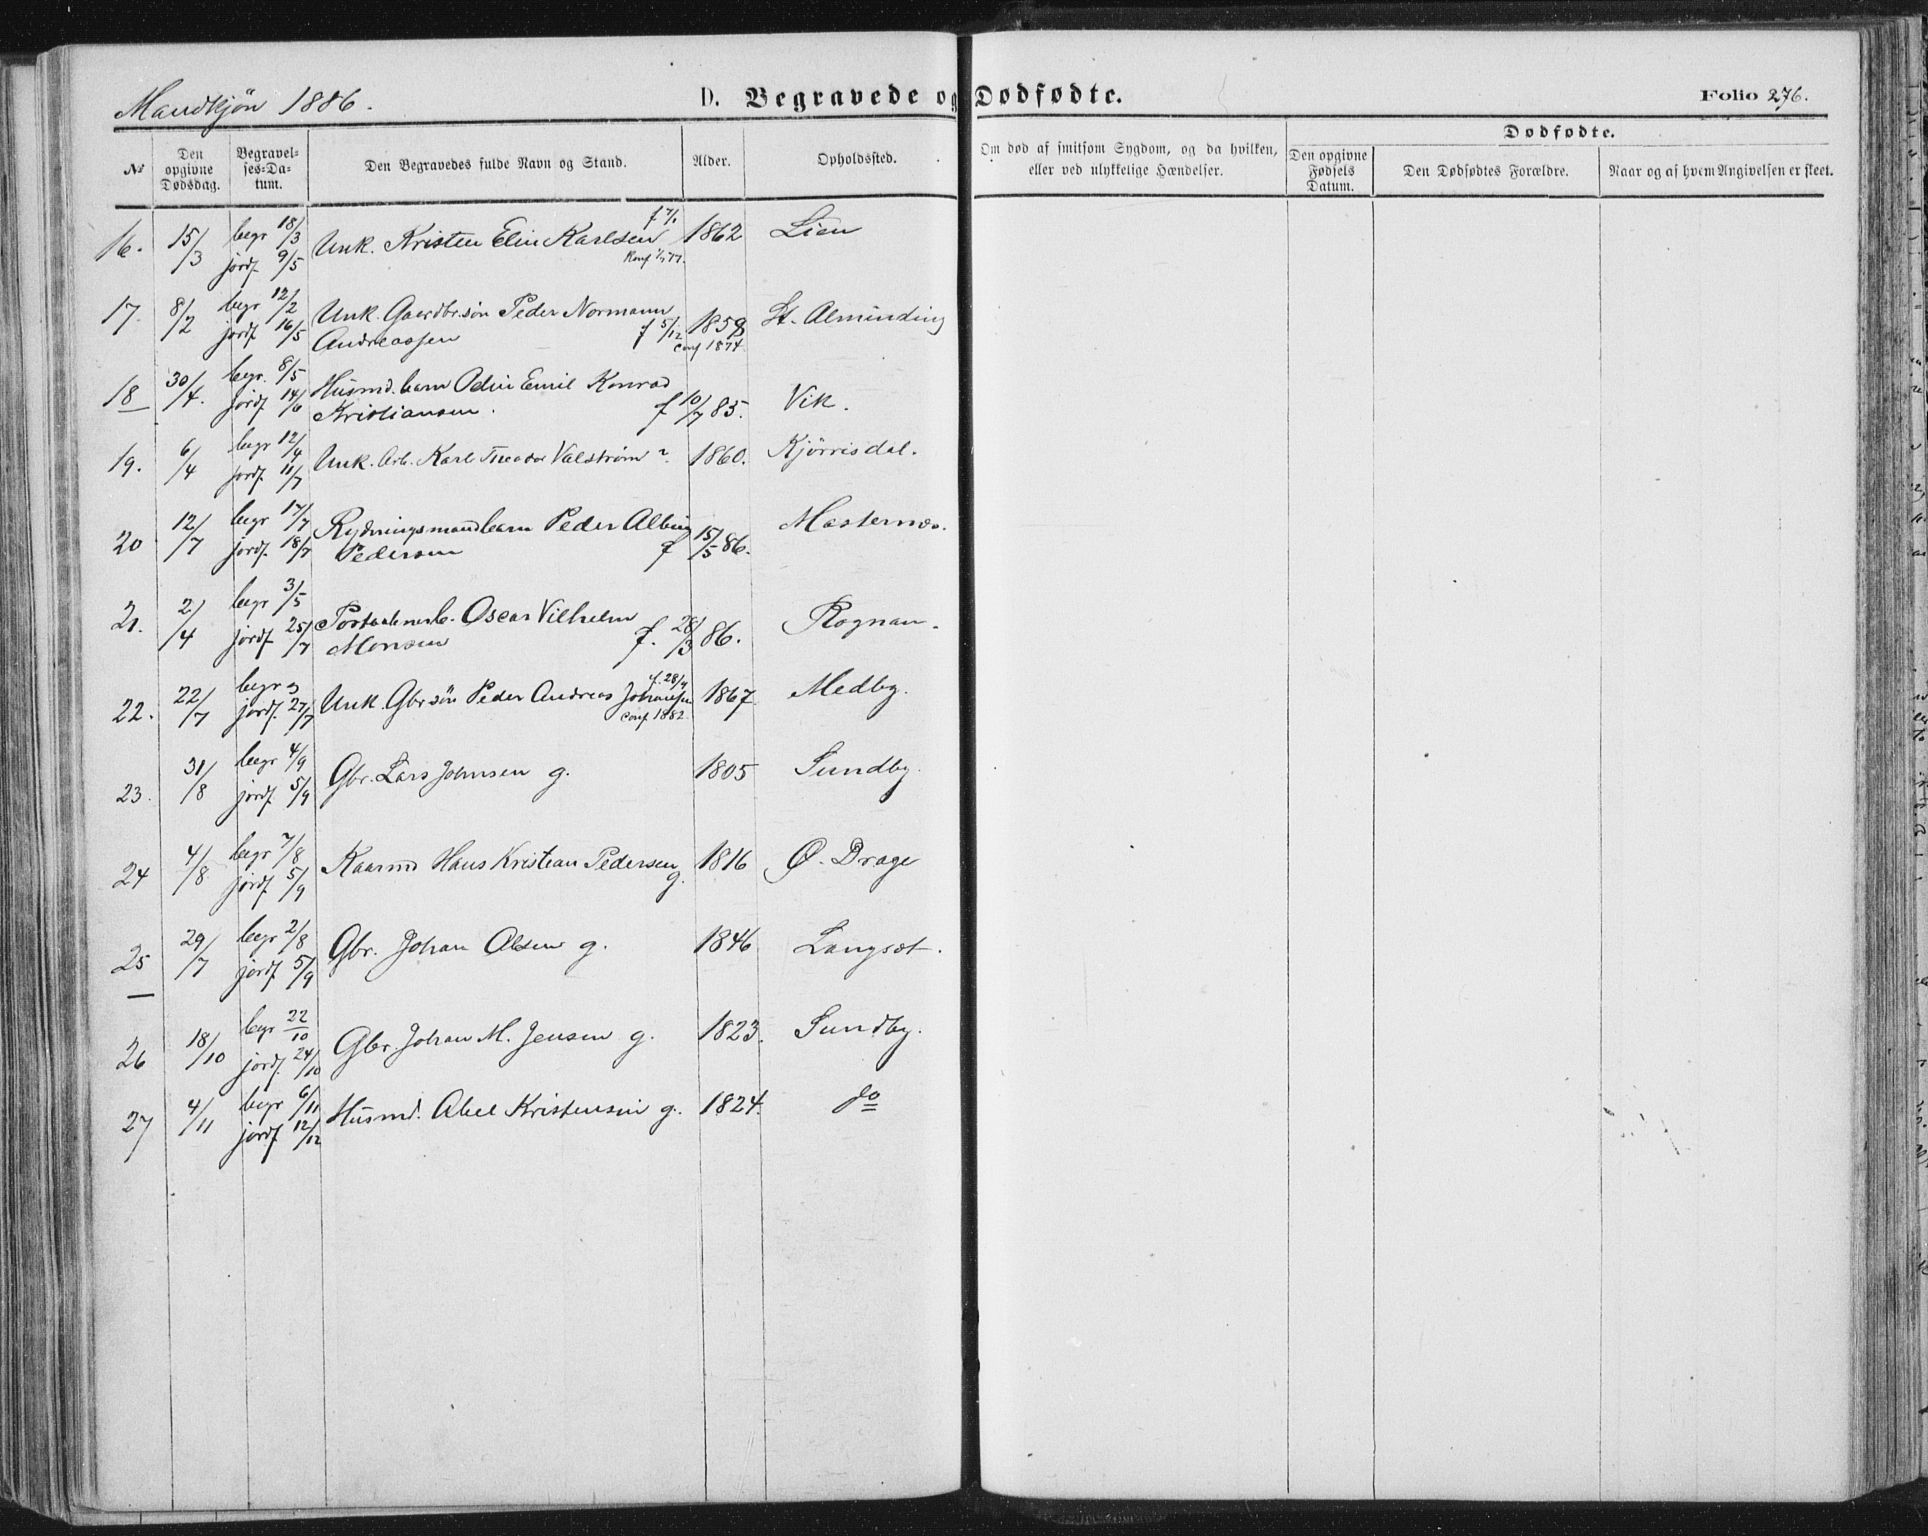 Mandkjön 1886.
D. Begravede og Dødfødte.
Folio 276.
№
Den opgivne Dødsdag.
Begravel-ses-Da-tum.
Den Begravedes fulde Navn og Stand.
Alder.
Opholdssted.
Om død af smitsom Sygdom, og da hvilken, eller ved ulykkelige Hændelser.
Dødfødte.
Den opgivne Fødsels Datum.
Den Dødfødtes Forældre.
Naar og af hvem Angivelsen er skeet.
16. 15/3 begr 18/3 Unk. Kristen Elin Karlsen 1862 Lien
jordf. 9/5
17. 8/2 begr 12/2 Unk. Gaardbr.søn Peder Normann 1858 St. Alminding
jordf 16/5 Andreassen f 5/12 conf 1874
18 30/4. begr. 8/5 Husmd. barn Odin Emil Konrad
jordf 14/6 Kristiansen. f 10/7 85. Vik.
19. 6/4 begr 12/4 Unk. Arb. Karl Theodor Valstrøm ? 1860. Kjörrisdal.
jordf. 11/7
20 12/7 begr 17/7 Rydningsmandbarn Peder Albin Masternes.
jordf. 18/7 Pedersen f 15/5 86.
21. 2/4 begr 3/5 Postaabnerb. Oscar Vilhelm Rognan.
jordf. 25/7 Monsen f. 28/3 86.
22. 22/7 begr Unk. Gbr søn Peder Andreas Johansen f. 28/4 1867. Medby.
jordf. 27/7 conf 1882.
23. 31/8 begr 4/9 Gbr. Lars Johnsen g. 1805 Sundby.
jordf 5/9
24 4/8 begr 7/8 Kaarmd Hans Kristian Pedersen g. 1816 Ø. Drage
jordf. 5/9
25 29/7 begr 2/8 Gbr. Johan Olsen g. 1846 Langsæt.
jordf 5/9
26 18/10 begr 22/10 Gbr. Johan M. Jensen g. 1823. Sundby.
jordf. 24/10
27 4/11 begr 6/11 Husmd. Abel Kristensen g. 1824. do
jordf 12/12